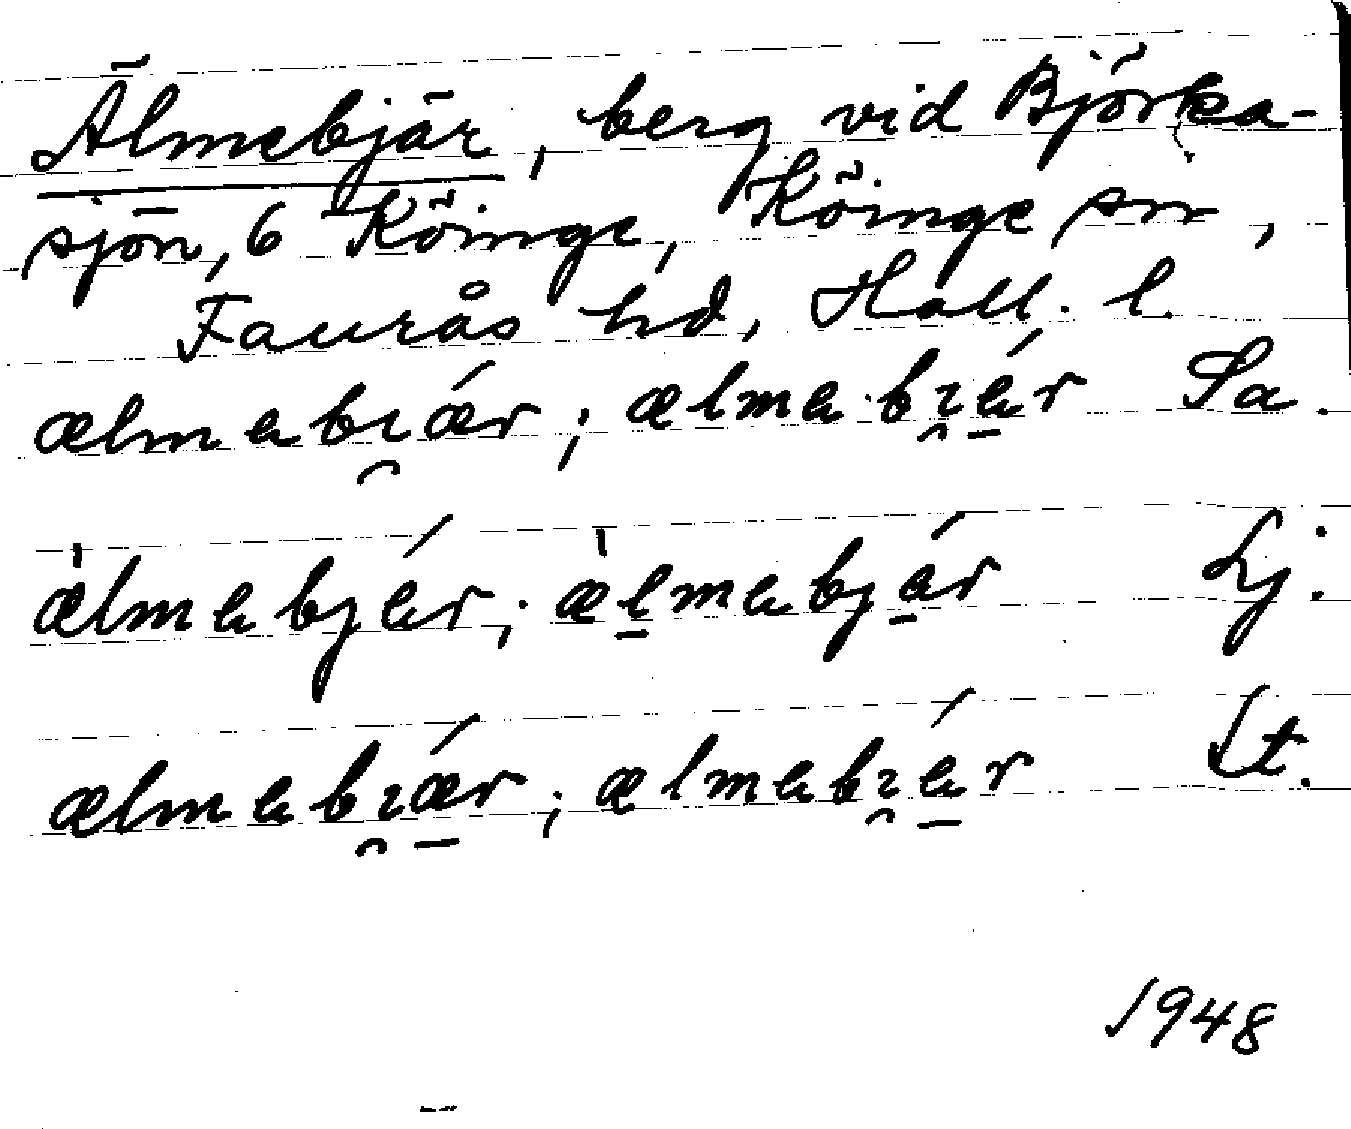 Älmebjär, berg vid Björka-
sjön, 6 Köinge, Köinge sn,
Faurås hd, Hall. l.
ælmebi̯ǽr; ælmebi̯é̠r Sa.
æ̍lmebjér; æ̍l̠mebjé̠r Lj.
ælmebi̯ǽ̠r; ælmebi̯é̠r Lt.
1948